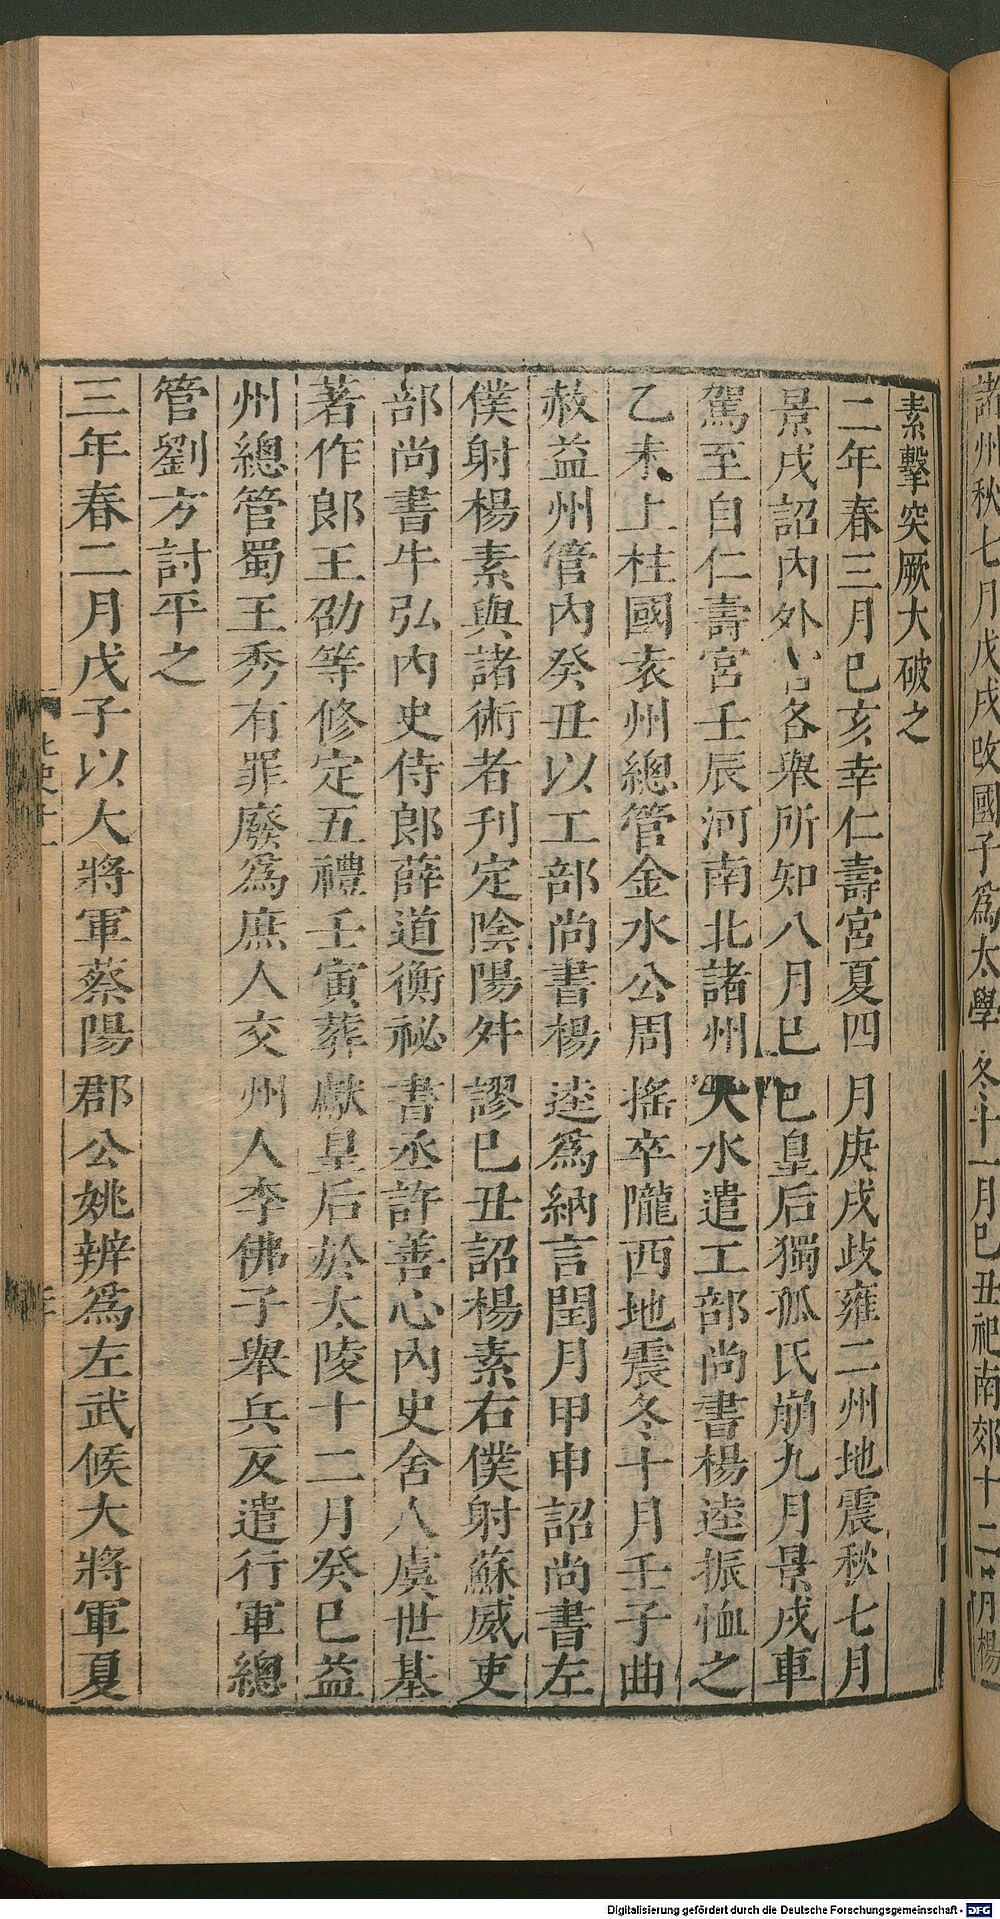 諸州秋七月戊戌改國子爲太學冬十一月己丑祀南郊十二月楊
素擊突厥大破之
二年春三月巳亥幸仁壽宮夏四月庚戌歧雍二州地震秋七月
景戌詔内外官各舉所知八月巳巳皇后獨孤氏崩九月景戌車
駕至自仁壽宮壬辰河南北諸州大水遣工部尚書楊達振恤之
乙未上柱國袁州總管金水公周搖卒隴西地震冬十月壬子曲
赦益州管内癸丑以工部尚書楊達爲納言閏月甲申詔尚書左
僕射楊素與諸術者刊定陰陽舛謬巳丑詔楊素右僕射蘇威吏
部尚書牛弘内史侍郎薛道衡祕書丞許善心内史舍人虞世基
著作郎王劭等修定五禮壬寅葬獻皇后於太陵十二月癸巳益
州總管蜀王秀有罪廢爲庶人交州人李佛子舉兵反遣行軍總
管劉方討平之
三年春二月戊子以大將軍蔡陽郡公姚辨爲左武候大將軍夏
Digitalisierung gefördert durch die Deutsche Forschungsgemeinschaft - DFG